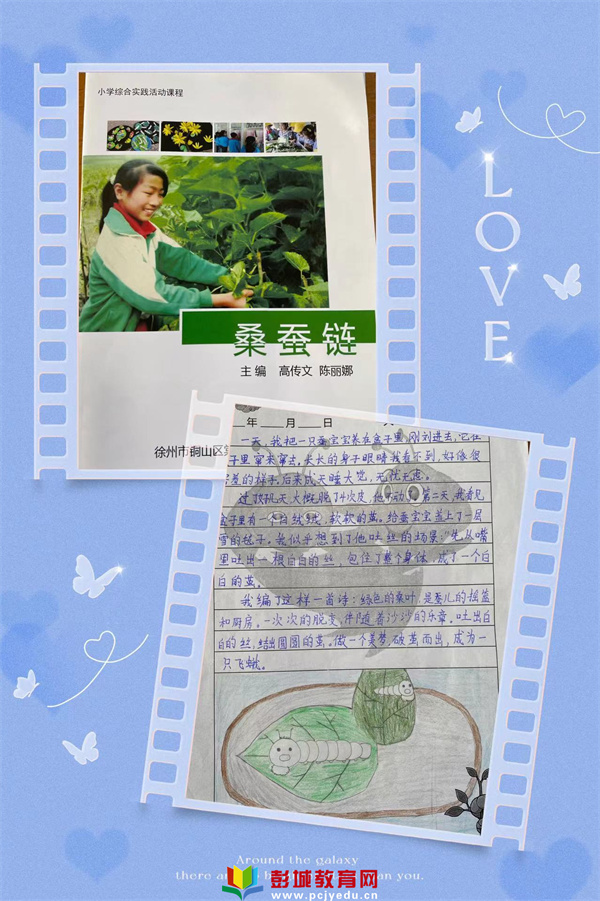 小学综合实践活动课程
桑蚕链
主编 高传文 陈丽娜
徐州市铜山区
LOVE
年 月 日
一天,我把一只蚕宝宝养在盒子里,刚刚进去,它在
子里窜来窜去。长长的身子眼睛我看不到,好像很
的样子,后来成天睡大觉,无忧无虑。
过了好几天,大概脱了4次皮,他不动了。第二天,我看见
盒子里有一个白绒绒,软软的茧。给蚕宝宝盖上了一层
雪的毯子。我似乎想到了他吐丝的场景:先从嘴
里吐出一根白白的丝,包住了整个身体,成了一个白
白的茧。
我编了这样一首诗:绿色的桑叶,是蚕儿的摇篮
和厨房。一次次的脱变,伴随着沙沙的乐章。吐出白
白的丝,结出圆圆的茧。做一个美梦,破茧而出,成为一
只飞蛾。
Around the galaxy
there are an you.
彭城教育网
www.pcjyedu.cn